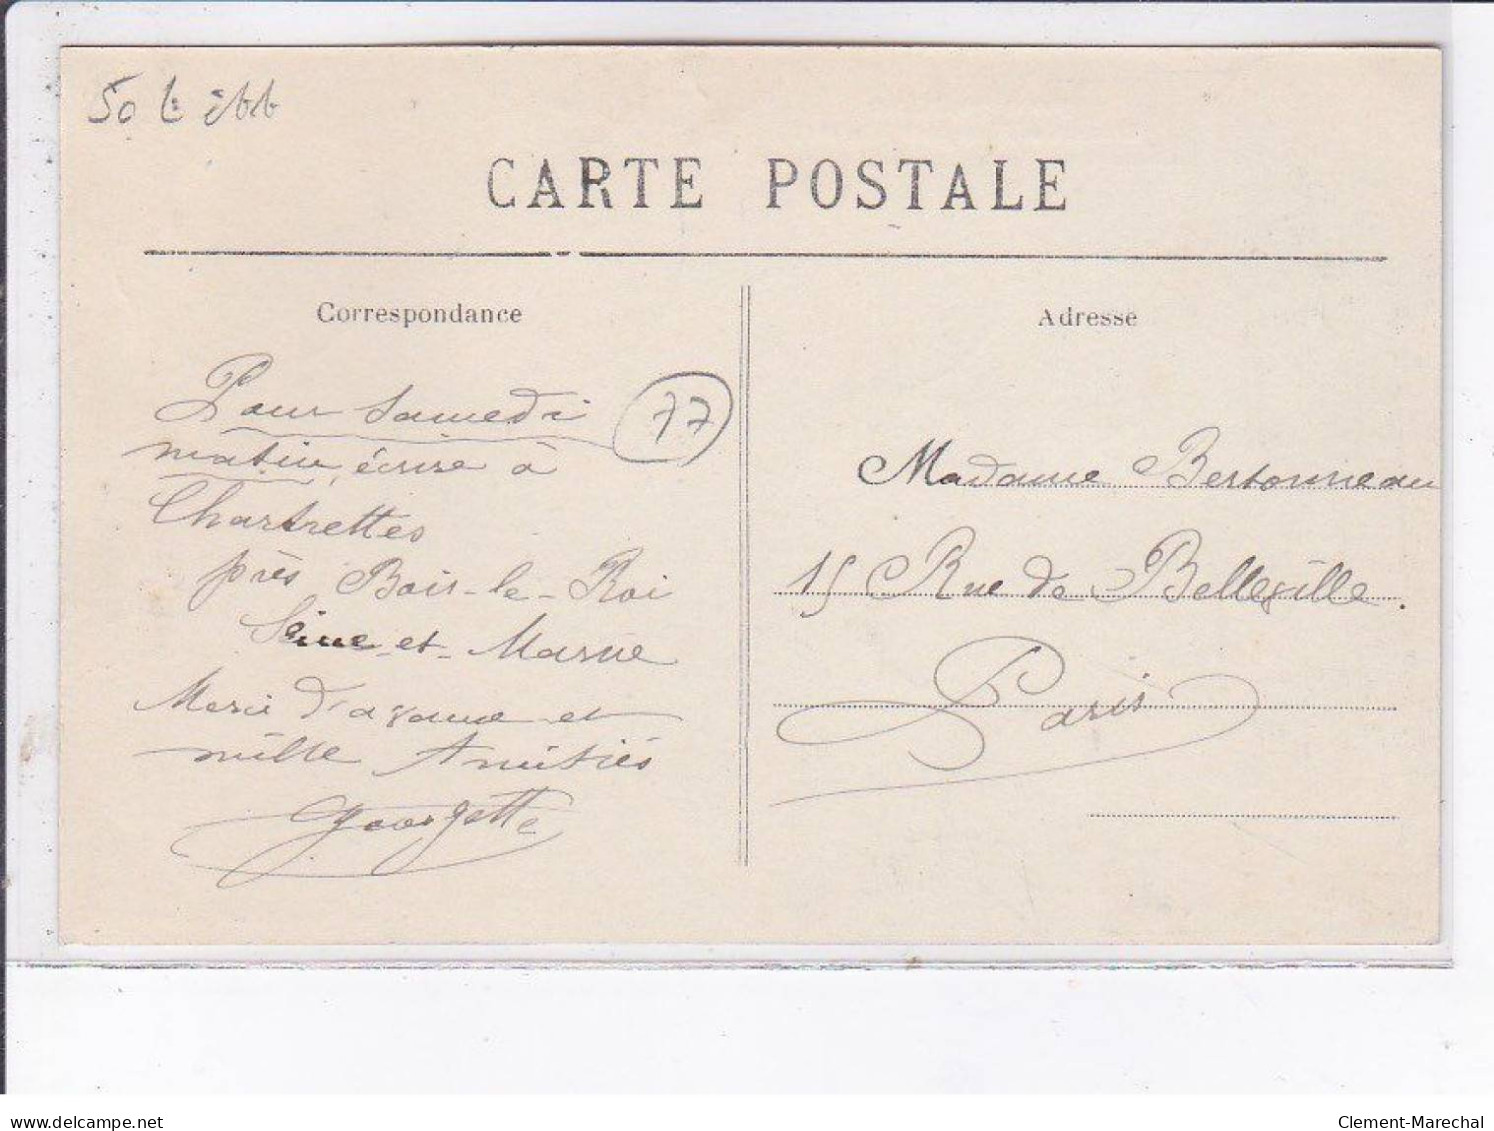 50
CARTE POSTALE
Correspondance
Pour Samedi
matin, écrire à
Chartrettes
près Bois-le-Roi
Seine-et-Marne
Merci d'avance et
mille Amitiés
Georgette
77
Adresse
Madame Bertonneau
15 Rue de Belleville.
Paris
delcampe.net
Clement-Marechal